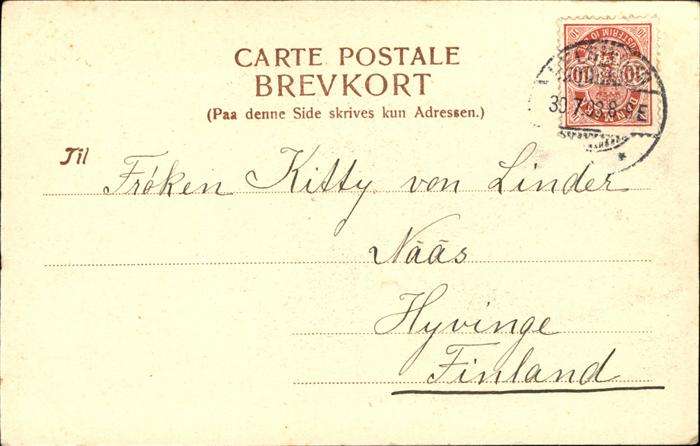 CARTE POSTALE
BREVKORT
(Paa denne Side skrives kun Adressen.)
Til
Frøken Kitty von Linder
Nääs
Hyvinge
Finland